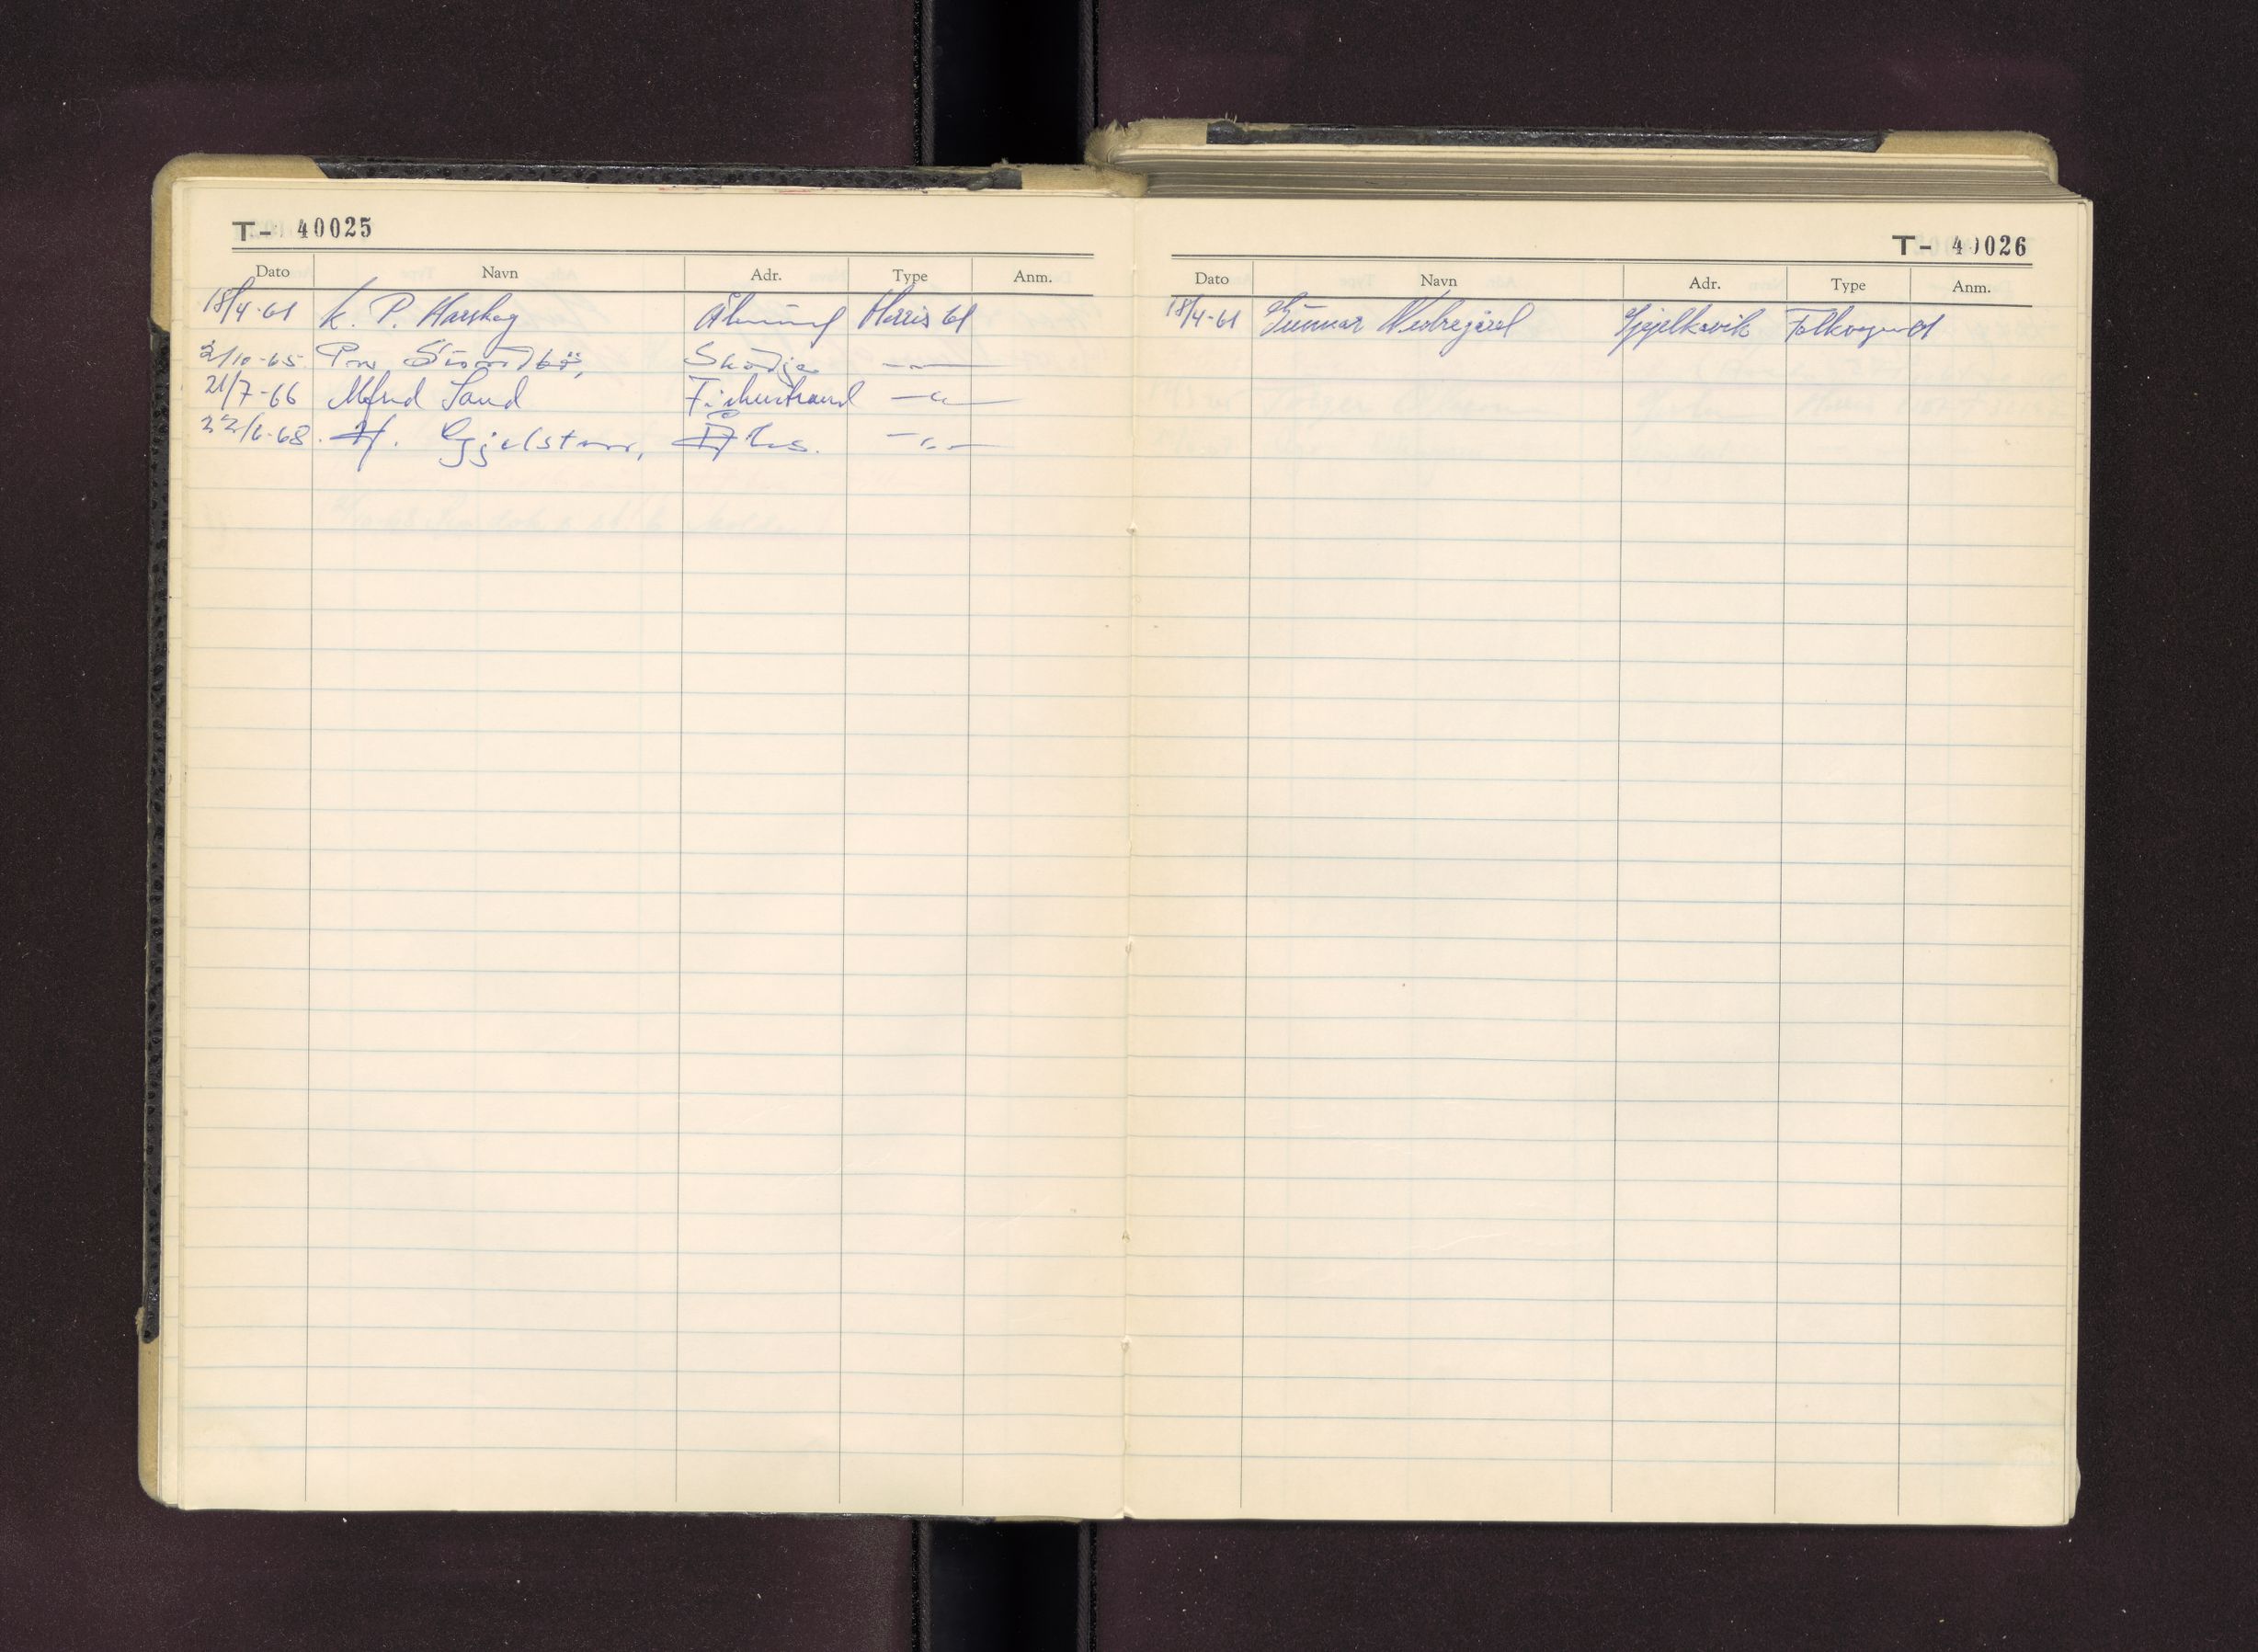 T- 40025
Dato Navn Adr. Type Anm.
18/4-61 K. P. Aarskog Ålesund Morris 61
2/10-65 Skodje —〃—
21/7-66 Alfred Sand Fiskerstrand —〃—
22/6-68. H. Gjelsten, —〃—
T- 40026
Dato Navn Adr. Type Anm.
18/4-61 Gunnar Vestregård Spjelkavik Folkevogn 61